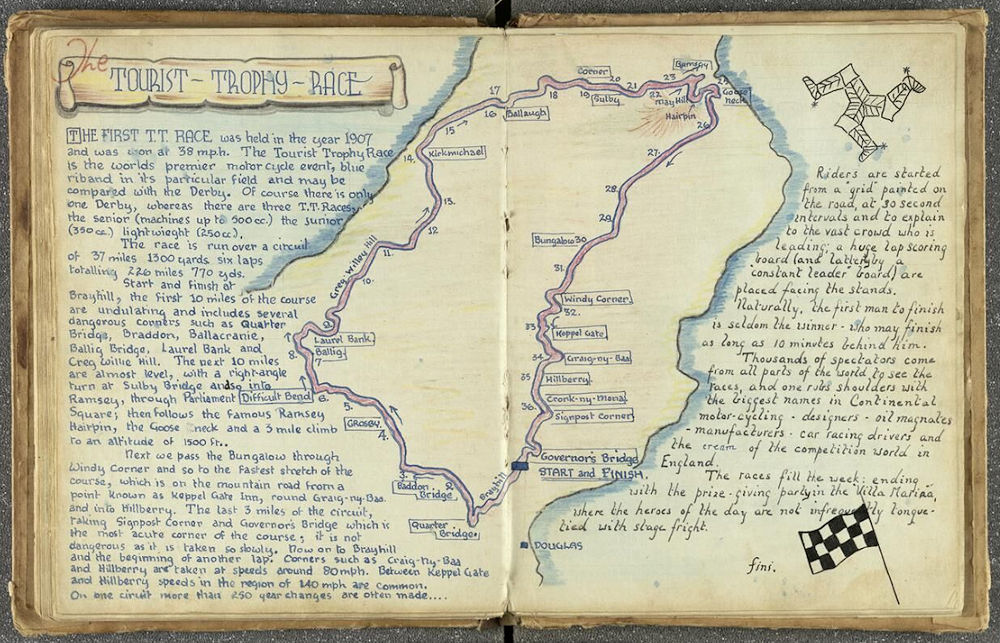 The
TOURIST - TROPHY - RACE
THE FIRST T.T. RACE was held in the year 1907
and was won at 38 mph. The Tourist Trophy Race
is the worlds premier motor cycle event, blue
riband in its particular field and may be
compared with the Derby. Of course there is only
one Derby, whereas there are three T.T. Races,
the senior (machines up to 500 cc.) the junior
(350 cc.) lightwieght (250 cc.).
The race is run over a circuit
of 37 miles 1300 yards six laps
totalling 226 miles 770 yds.
Start and Finish at
Brayhill, the first 10 miles of the course
are undulating and includes several
dangerous corners such as Quarter
Bridge, Braddon, Ballacranie,
Ballig Bridge, Laurel Bank and
Creg Willie Hill. The next 10 miles
are almost level, with a right-angle
turn at Sulby Bridge and so into
Ramsey, through Parliament
Square; then follows the famous Ramsey
Hairpin, the Goose neck and a 3 mile climb
to an altitude of 1500 ft..
Next we pass the Bungalow through
Windy Corner and so to the fastest stretch of the
course, which is on the mountain road from a
point known as Keppel Gate Inn, round Graig-ny-Baa
and into Hillberry. The last 3 miles of the circuit,
taking Signpost Corner and Governor's Bridge which is
the most acute corner of the course; it is not
dangerous as it is taken so slowly. Now on to Brayhill
and the beginning of another lap. Corners such as Craig-ny-Baa
and Hillberry are taken at speeds around 80 mph. Between Keppel Gate
and Hillberry speeds in the region of 140 mph are common.
On one circuit more than 250 gear changes are often made....
Ramsey
Corner
23
24
Goose neck
17
18
19
20
21
22
Sulby
May Hill
Hairpin
16
Ballaugh
15
26
14
Kirkmichael
27
13
28
12
29
11
Greg-Willey Hill
Bungalow
30
31
10
Windy Corner
32
9
Laurel Bank
33
Keppel Gate
8
Ballig
7
34
Craig-ny-Baa
35
Hillberry
Difficult Bend
6
Cronk-ny-mona
5
36
Signpost Corner
GROSBY
4
Governor's Bridge
START and FINISH
3
2
Baddon Bridge
Brayhill
Quarter Bridge
DOUGLAS
Riders are started
from a "grid" painted on
the road, at 30 second
intervals and to explain
to the vast crowd who is
leading, a huge lap scoring
board (and latterly by a
"constant leader" board) are
placed facing the stands.
Naturally, the first man to finish
is seldom the winner - who may finish
as long as 10 minutes behind him.
Thousands of spectators come
from all parts of the world to see the
races, and one rubs shoulders with
the biggest names in Continental
motor-cycling - designers - oil magnates
- manufacturers - car racing drivers and
the cream of the competition world in
England.
The races fill the week: ending
with the prize-giving party in the Villa Marina,
where the heroes of the day are not infrequently tongue-
tied with stage fright.
fini.